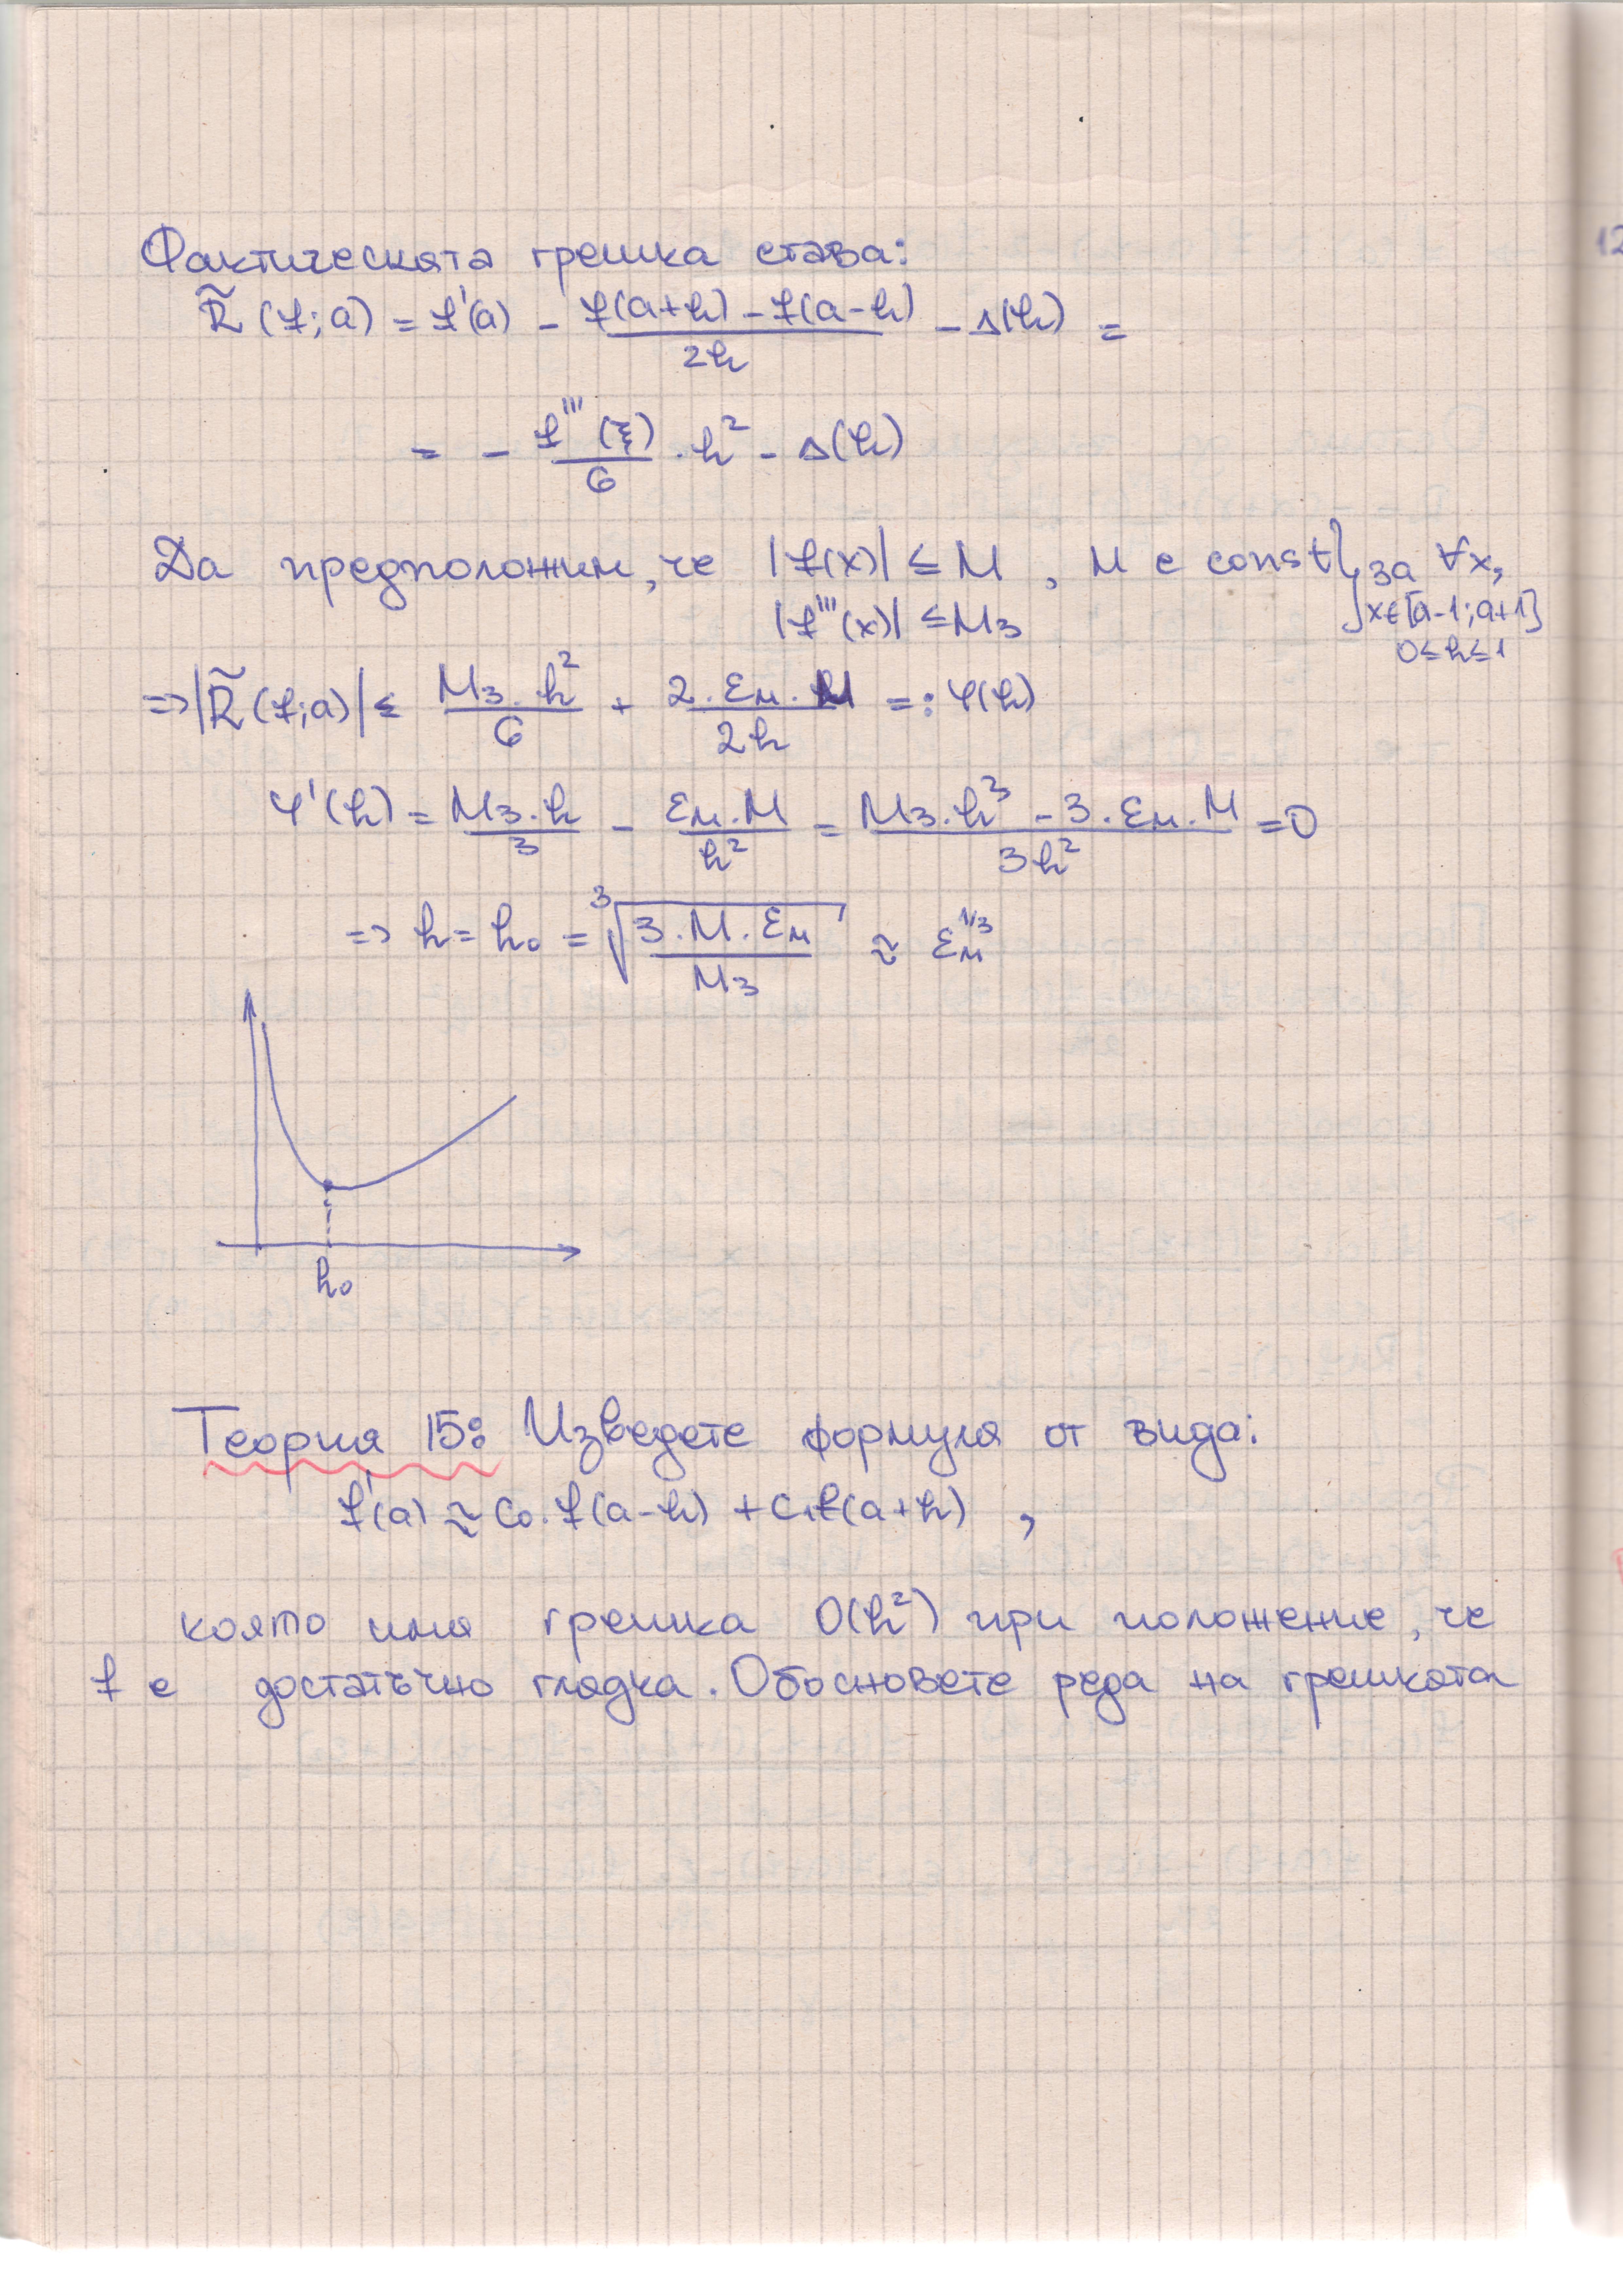 Фактическата грешка става:
R̃(f;a) = f'(a) - (f(a+h) - f(a-h))/2h - Δ(h) =
= - f'''(ξ)/6 . h² - Δ(h)
Да предположим, че |f(x)| ≤ M, M e const } за ∀x,
|f'''(x)| ≤ M₃ x∈[a-1;a+1]
0≤h≤1
=> |R̃(f;a)| ≤ M₃.h²/6 + 2.εм.M/2h =: φ(h)
φ'(h) = M₃.h/3 - εм.M/h² = (M₃.h³ - 3.εм.M)/3h² = 0
=> h = h₀ = ∛(3.M.εм/M₃) ≈ εм^1/3
h₀
Теория 15: Изведете формула от вида:
f'(a) ≈ C₀.f(a-h) + C₁f(a+h) ,
която има грешка O(h²) при положение, че
f е достатъчно гладка. Обосновете реда на грешката